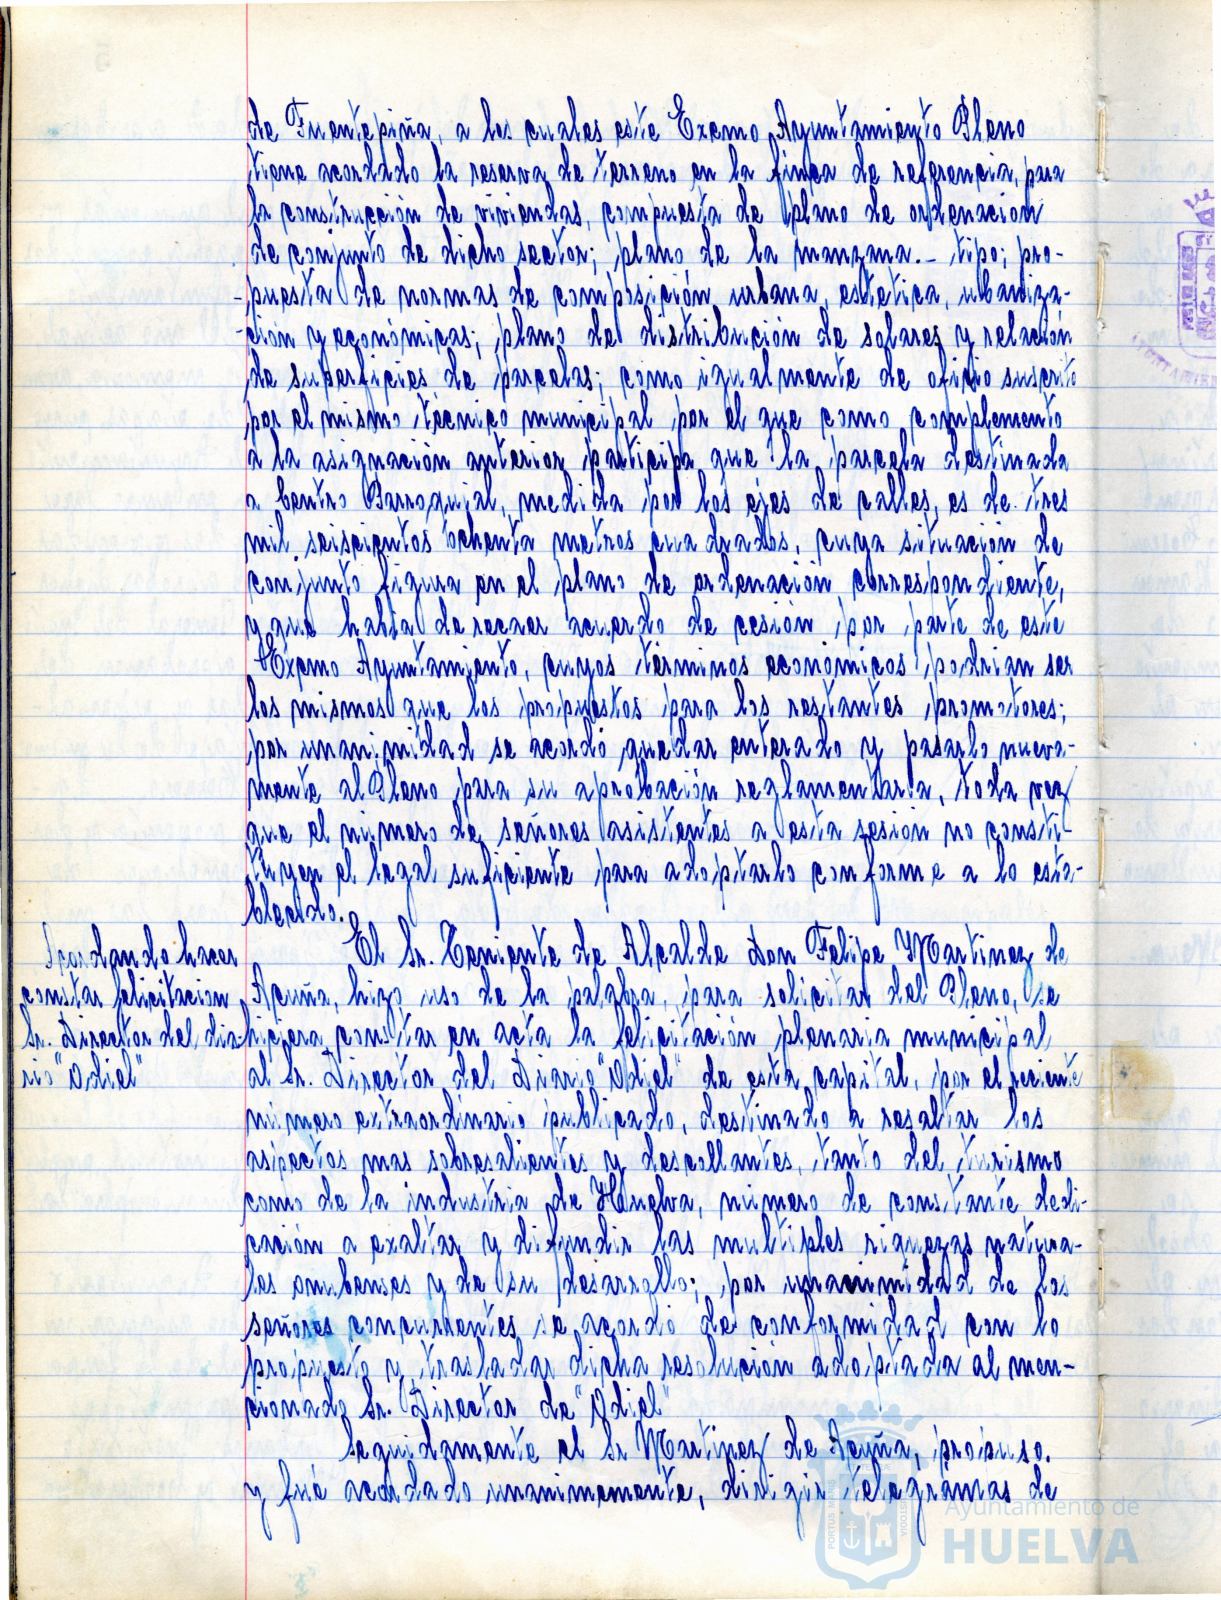 de Fuentepiña, a los cuales este Excmo Ayuntamiento Pleno
tiene acordado la reserva de terreno en la finca de referencia, para
la construcción de viviendas, compuesta de plano de ordenación
de conjunto de dicho sector; plano de la manzana.- tipo; pro-
puesta de normas de composición urbana, estetica, urbaniza-
ción y económicas; plano de distribución de solares y relación
de superficies de parcelas; como igualmente de oficio suscrito
por el mismo técnico municipal por el que como complemento
a la asignación anterior participa que la parcela destinada
a Centro Parroquial, medida por los ejes de calles, es de tres
mil seiscientos ochenta metros cuadrados, cuya situación de
conjunto figura en el plano de ordenación correspondiente,
y que habla de recaer acuerdo de cesión por parte de este
Excmo Ayuntamiento, cuyos términos económicos podrian ser
los mismos que los propuestos para los restantes promotores;
por unanimidad se acordó quedar enterado y pasarlo nueva-
mente al Pleno para su aprobación reglamentaria, toda vez
que el número de señores asistentes a esta sesión no consti-
tuyen el legal suficiente para adoptarlo conforme a lo esta-
blecido.
Acordando hacer
constar felicitacion
Sr. Director del dia-
rio "Odiel"
El Sr. Teniente de Alcalde Don Felipe Martinez de
Acuña, hizo uso de la palabra, para solicitar del Pleno, se
hiciera constar en acta la felicitación plenaria municipal
al Sr. Director del Diario "Odiel" de esta capital, por el reciente
número extraordinario publicado, destinado a resaltar los
aspectos mas sobresalientes y descollantes, tanto del turismo
como de la industria de Huelva, número de constante dedi-
cación a exaltar y difundir las multiples riquezas natura-
les onubenses y de su desarrollo; por unanimidad de los
señores concurrentes se acordó de conformidad con lo
propuesto y trasladar dicha resolución adoptada al men-
cionado Sr. Director de "Odiel"
Seguidamente el Sr Martinez de Acuña, propuso.
y fué acordado unanimemente, dirigir telegramas de
Ayuntamiento de
HUELVA